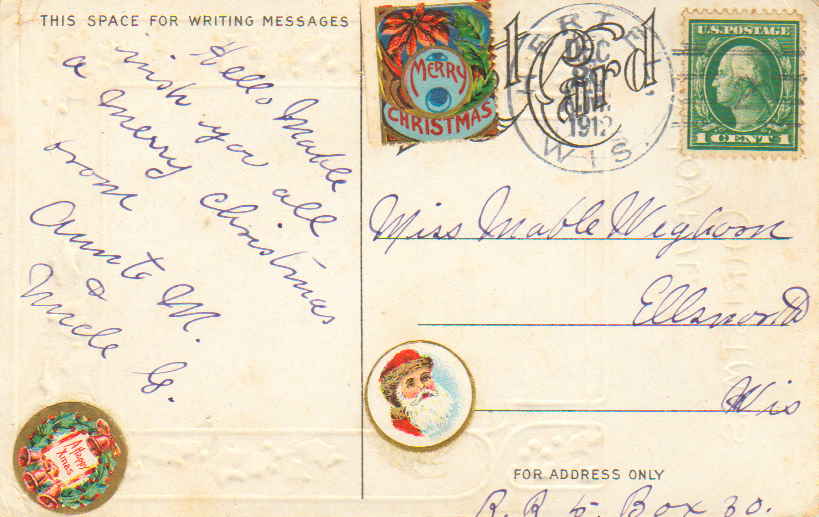 THIS SPACE FOR WRITING MESSAGES
Hello Mable
wish you all
a merry christmas
from
Aunt M.
&
Uncle G.
A Happy
Xmas
MERRY
CHRISTMAS
DEC
1912
WIS.
U.S. POSTAGE
1 CENT 1
Miss Mable Weghorn
Ellsworth
Wis
FOR ADDRESS ONLY
R.R 5. Box 30.